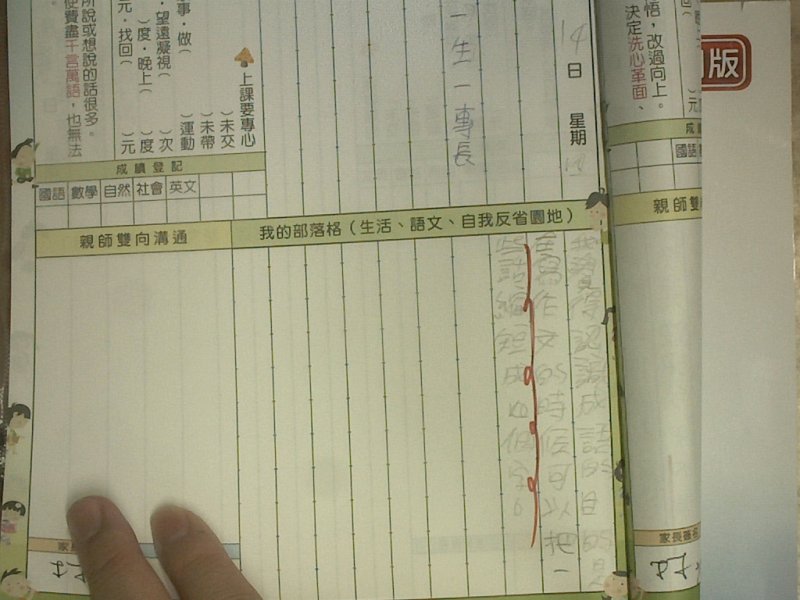 版
悟，改過向上。
決定洗心革面、
）元
國語
親師雙
14日 星期
一生一專長
上課要專心
）未交
）未帶
）運動
事．做（
）次
．望遠凝視（
）度
）度．晚上（
）元
元．找回（
所說或想說的話很多。
使費盡千言萬語，也無法
成績登記
國語 數學 自然 社會 英文
親師雙向溝通
我的部落格（生活、語文、自我反省園地）
我覺得認識成語的目的是
在寫作文的時候可以把一
些話縮短成四個字。
家長簽名